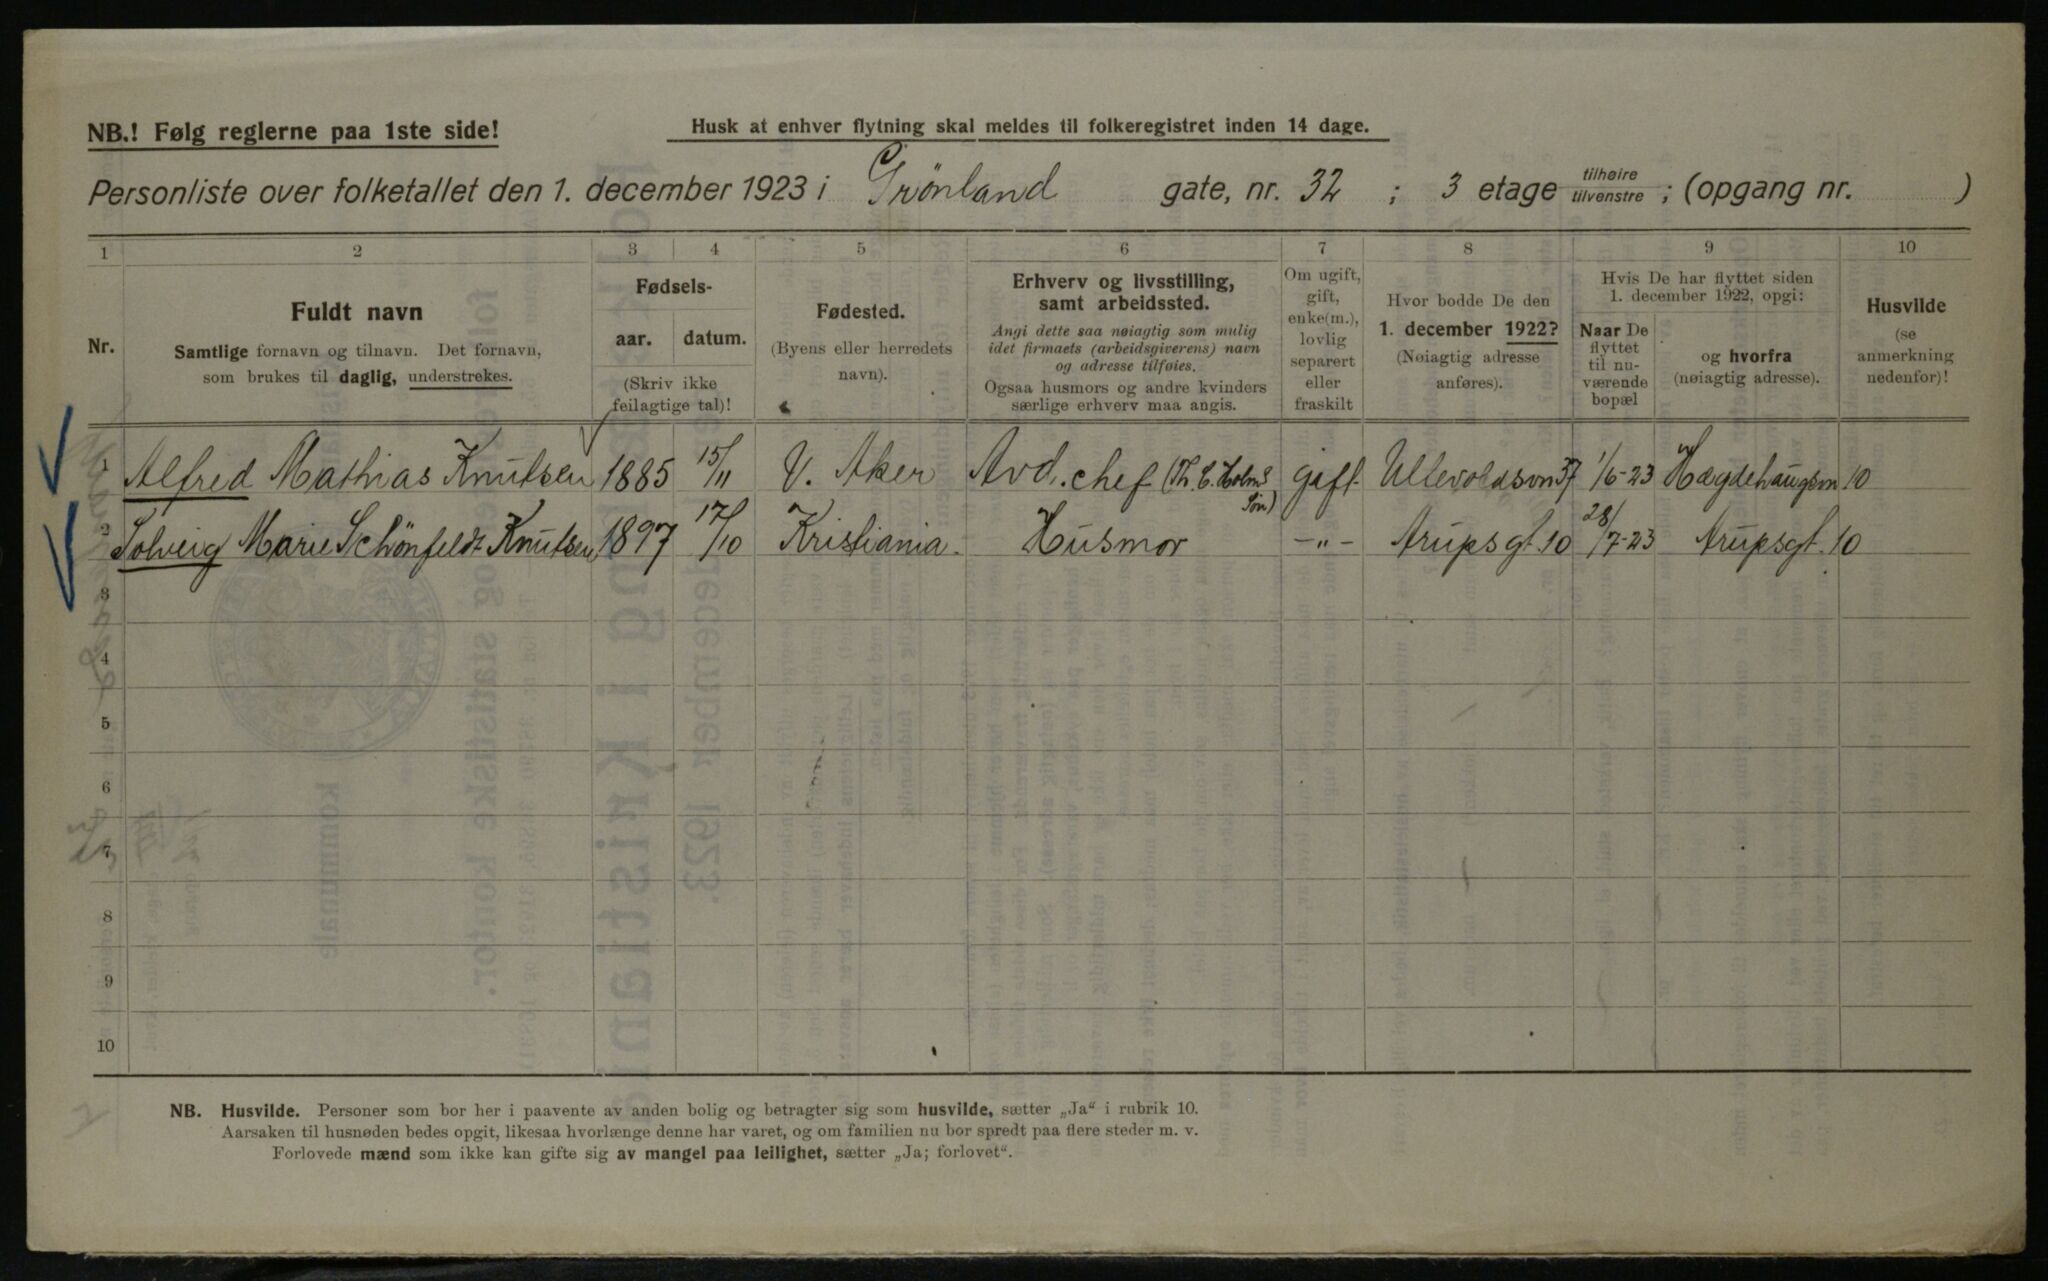 NB.! Følg reglerne paa 1ste side!
Husk at enhver flytning skal meldes til folkeregistret inden 14 dage.
Personliste over folketallet den 1. december 1923 i Grønland gate, nr. 32 ; 3 etage tilhøire tilvenstre ; (opgang nr. )
1 2 3 4 5 6 7 8 9 10
Nr.
Fuldt navn
Samtlige fornavn og tilnavn. Det fornavn,
som brukes til daglig, understrekes.
Fødsels-
aar. datum.
(Skriv ikke
feilagtige tal)!
Fødested.
(Byens eller herredets
navn).
Erhverv og livsstilling,
samt arbeidssted.
Angi dette saa nøiagtig som mulig
idet firmaets (arbeidsgiverens) navn
og adresse tilføies.
Ogsaa husmors og andre kvinders
særlige erhverv maa angis.
Om ugift,
gift,
enke(m.),
lovlig
separert
eller
fraskilt
Hvor bodde De den
1. december 1922?
(Nøiagtig adresse
anføres).
Hvis De har flyttet siden
1. december 1922, opgi:
Naar De
flyttet
til nu-
værende
bopæl
og hvorfra
(nøiagtig adresse).
Husvilde
(se
anmerkning
nedenfor)!
1 Alfred Mathias Knutsen 1885 15/11 V. Aker Avd. chef (Th. C. Holm & Søn) gift Ullevoldsvn 37 1/6-23 Hægdehaugsvn 10
2 Solveig Marie Schønfeldt Knutsen 1897 17/10 Kristiania Husmor -„- Arupsgt. 10 28/7-23 Arupsgt. 10
3
4
5
6
7
8
9
10
NB. Husvilde. Personer som bor her i paavente av anden bolig og betragter sig som husvilde, sætter „Ja" i rubrik 10.
Aarsaken til husnøden bedes opgit, likesaa hvorlænge denne har varet, og om familien nu bor spredt paa flere steder m. v.
Forlovede mænd som ikke kan gifte sig av mangel paa leilighet, sætter „Ja; forlovet".